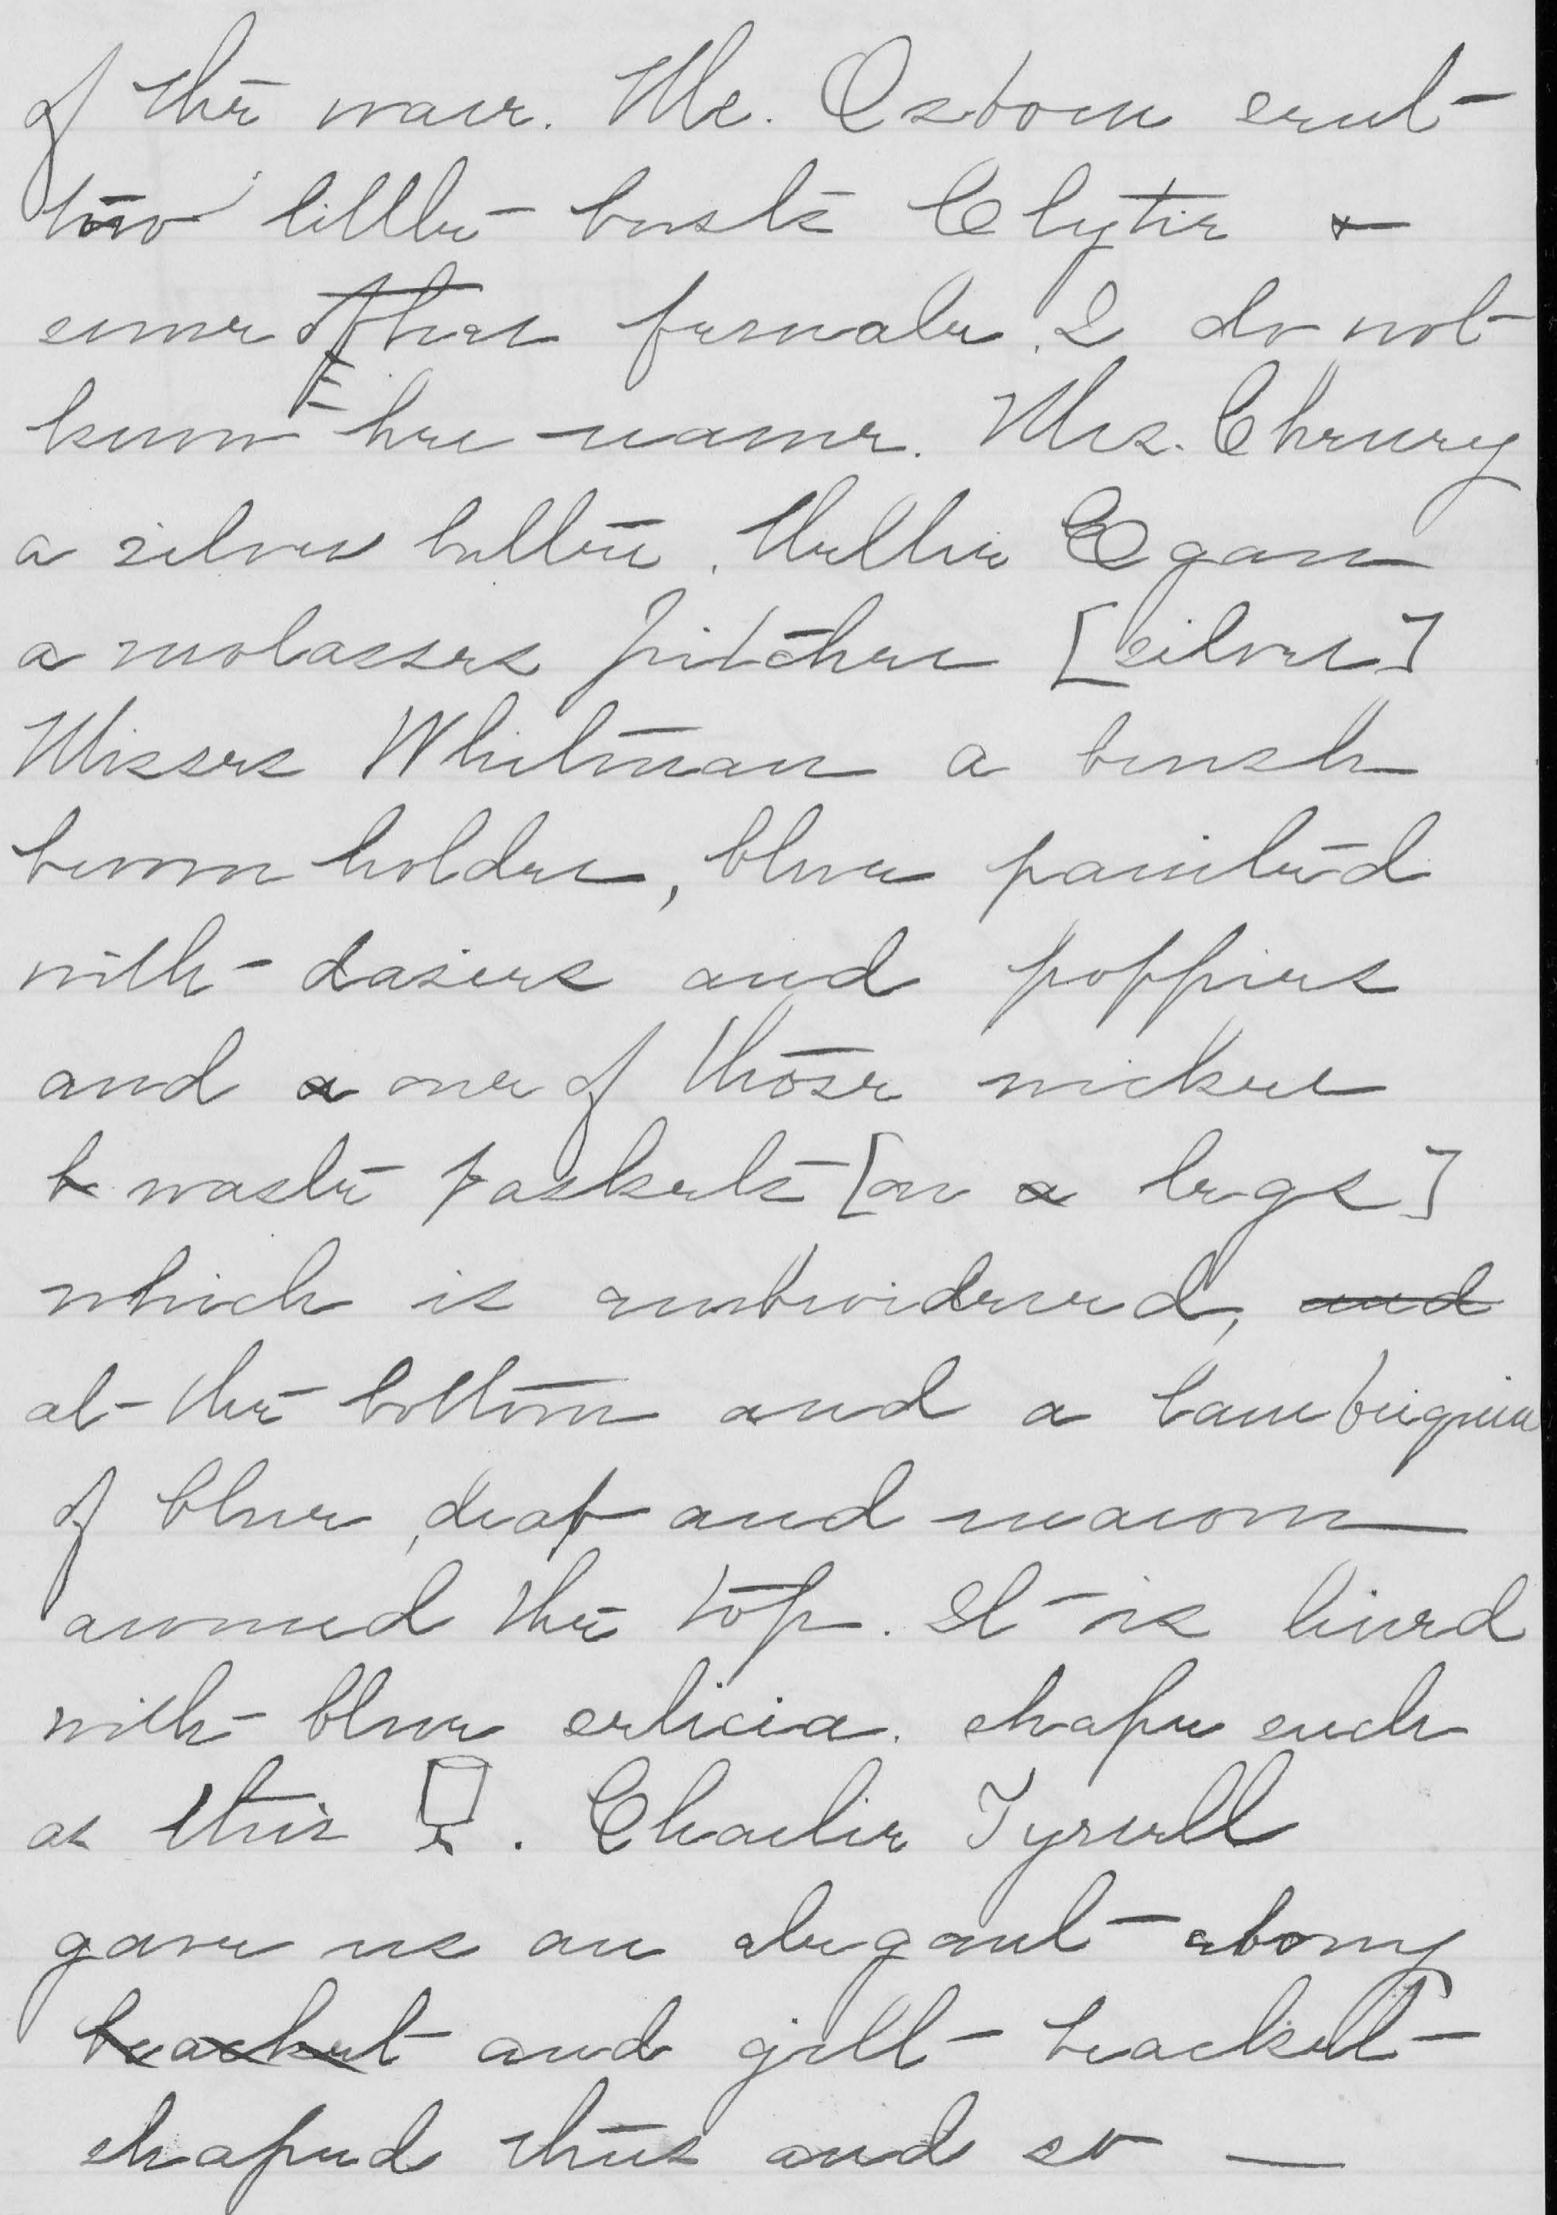 of the ware. Mr. Osborn sent
two little busts Clytie &
some other female. I do not
know her name. Mrs. Cheney
a silver butter. Nellie Egan
a molasses pitcher [silver]
Misses Whitman a brush
broom holder, blue painted
with dasies and poppies
and a one of those wicker
b waste baskets [on a legs]
which is embroidered, and
at the bottom and a lambriquin
of blue, drab and maroon
around the top. It is lined
with blue selicia. shape such
as this . Charlie Tyrrell
gave us an elegant ebony
bracket and gilt bracket
shaped thus and so —